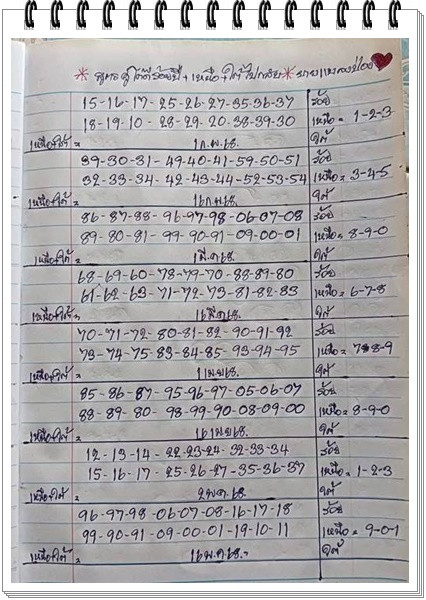 15-16-17-25-26-27-35-36-37 ร้อย
18-19-10-28-29-20-38-39-30 เหนือ = 1-2-3
เหนือ+ใต้ = 1 ก.พ. 68. ใต้
39-30-31-49-40-41-59-50-51 ร้อย
32-33-34-42-43-44-52-53-54 เหนือ = 3-4-5
เหนือ+ใต้ = 16 ก.พ. 68 ใต้
86-87-88-96-97-98-06-07-08 ร้อย
89-80-81-99-90-91-09-00-01 เหนือ = 8-9-0
เหนือ+ใต้ = 1 มี.ค 68 ใต้
68-69-60-78-79-70-88-89-80 ร้อย
61-62-63-71-72-73-81-82-83 เหนือ = 6-7-8
เหนือ+ใต้ = 16 มี.ค 68. ใต้
70-71-72-80-81-82-90-91-92 ร้อย
73-74-75-83-84-85-93-94-95 เหนือ = 7-8-9
เหนือ+ใต้ = 1 เม.ย 68. ใต้
85-86-87-95-96-97-05-06-07 ร้อย
88-89-80-98-99-90-08-09-00 เหนือ = 8-9-0
เหนือ+ใต้ = 16 เม.ย 68. ใต้
12-13-14-22-23-24-32-33-34 ร้อย
15-16-17-25-26-27-35-36-37 เหนือ = 1-2-3
เหนือ+ใต้ = 2 พ.ค. 68. ใต้
96-97-98-06-07-08-16-17-18 ร้อย
99-90-91-09-00-01-19-10-11 เหนือ = 9-0-1
เหนือ+ใต้ = 16 พ.ค. 68. ใต้